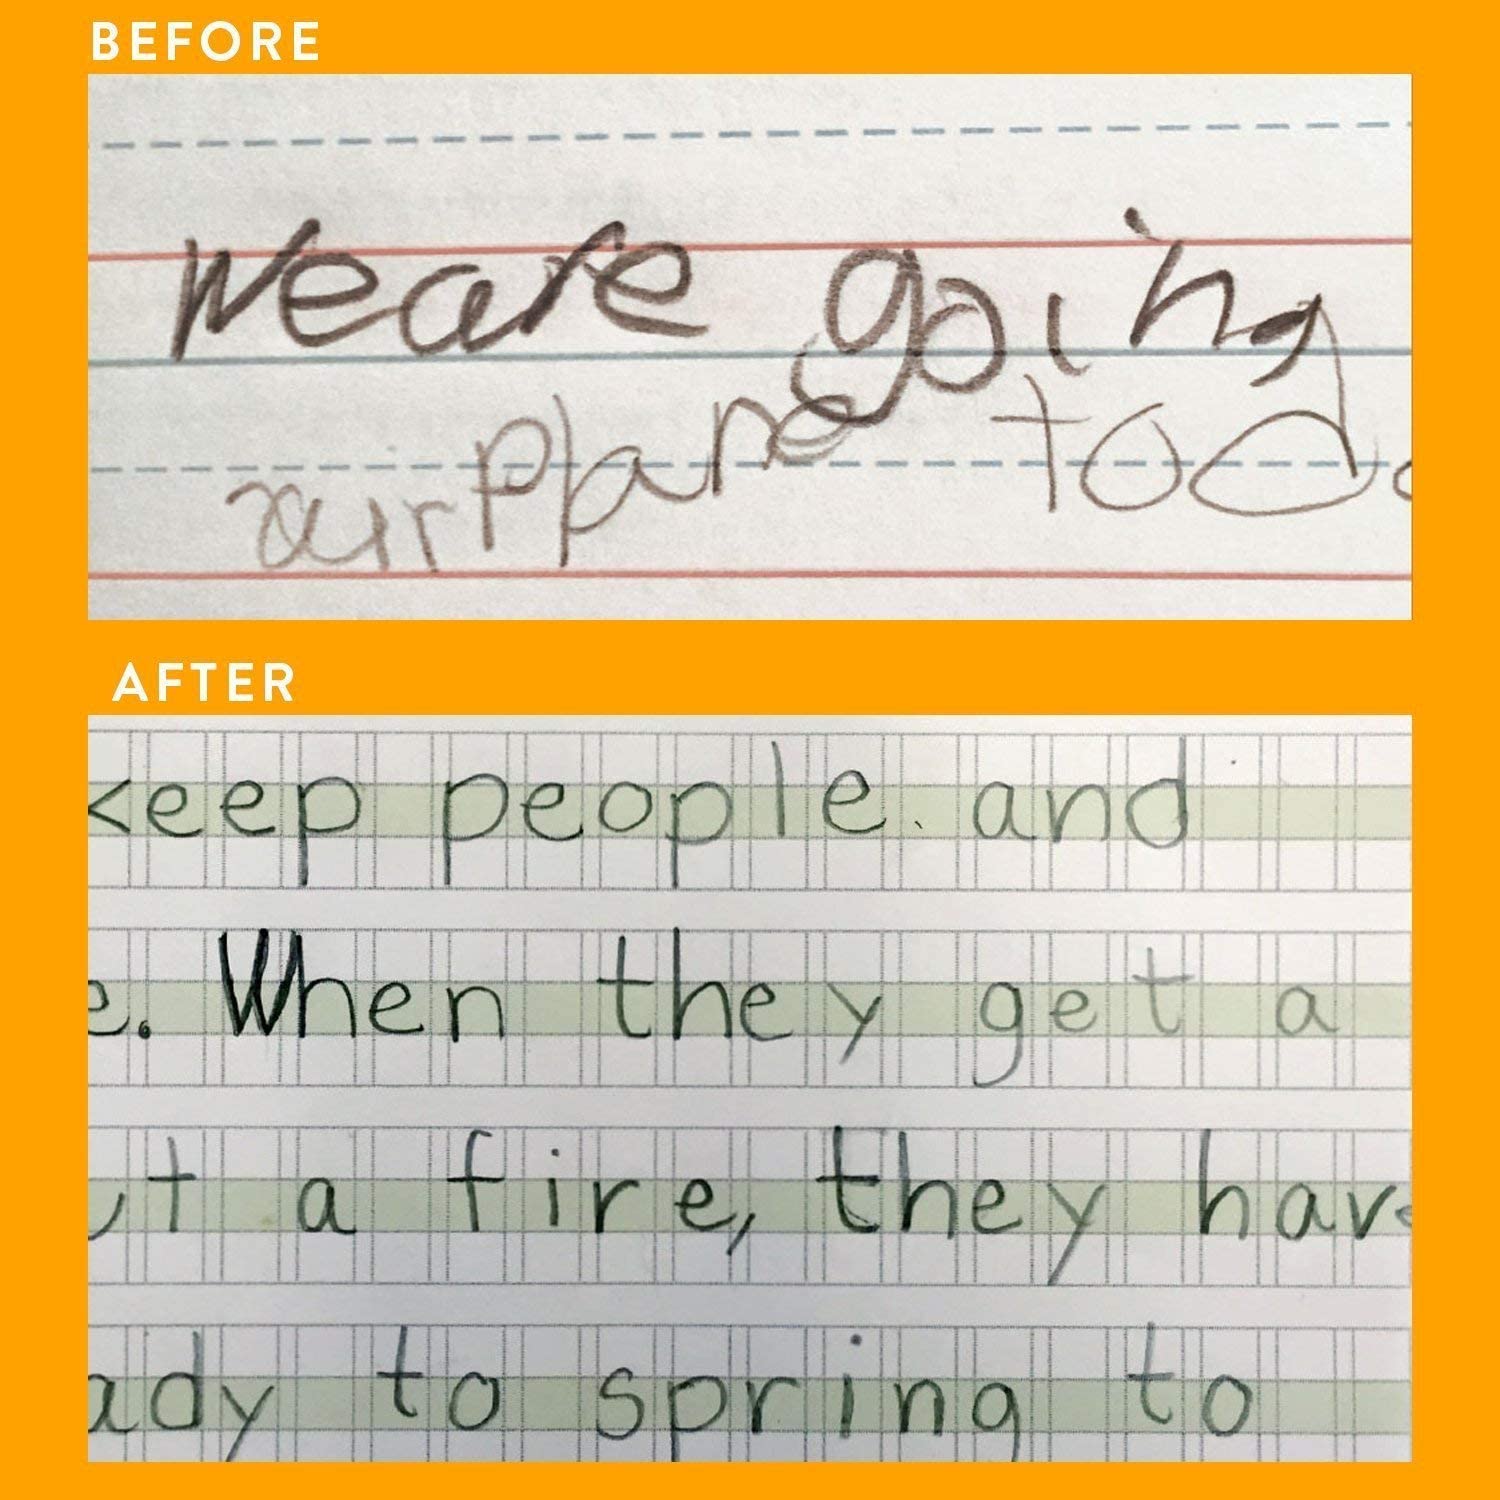 BEFORE
Weare going
airplane tod
AFTER
keep people and
e. When they get a
ut a fire, they have
ady to spring to